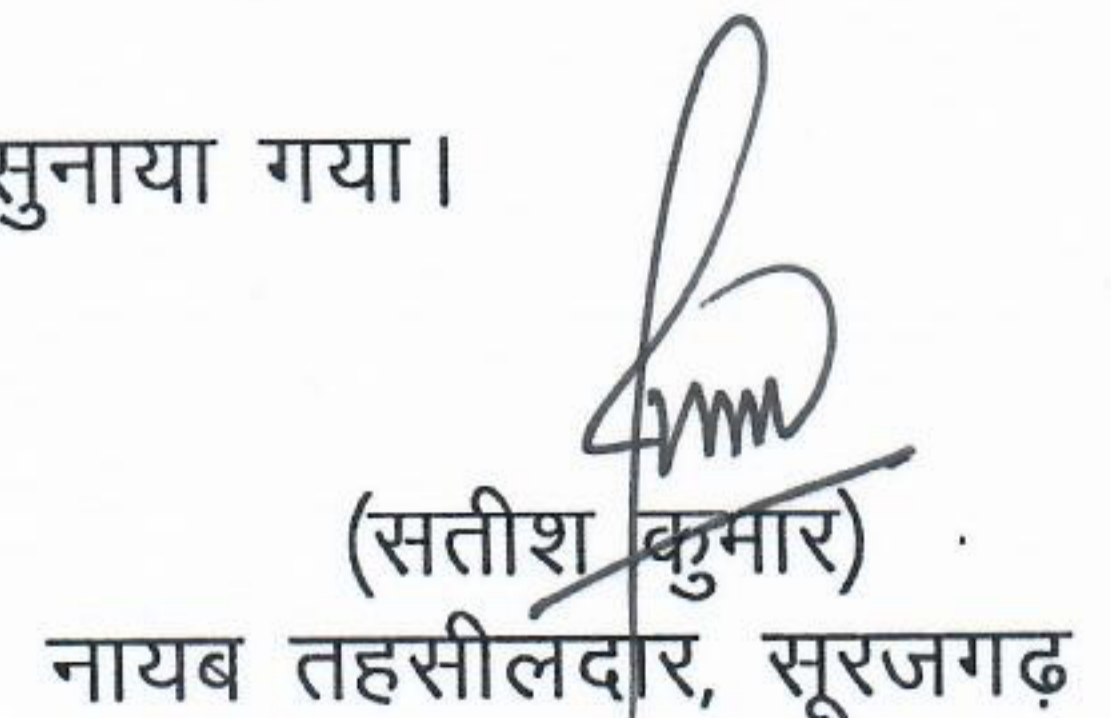 सुनाया गया।
(सतीश कुमार)
नायब तहसीलदार, सूरजगढ़